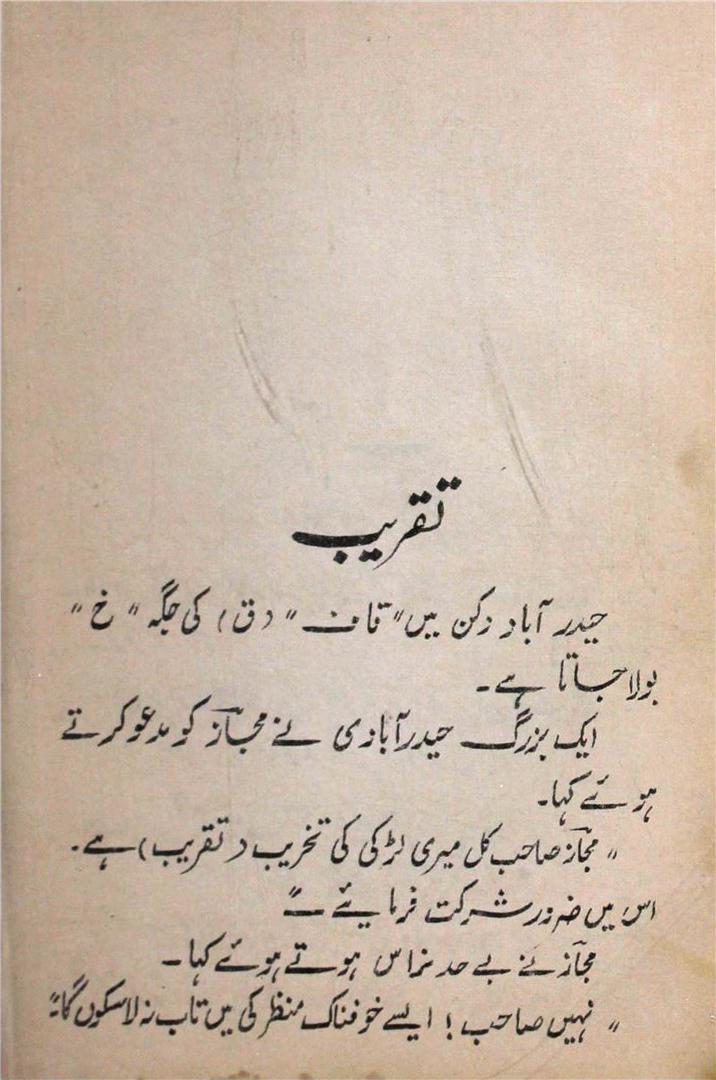 تقریب
حیدر آباد دکن میں "قاف" (ق) کی جگہ "خ"
بولا جاتا ہے۔
ایک بزرگ حیدرآبادی نے مجاز کو مدعو کرتے
ہوئے کہا۔
"مجاز صاحب کل میری لڑکی کی تخریب (تقریب) ہے۔
اس میں ضرور شرکت فرمایئے —"
مجاز نے بے حد نراس ہوتے ہوئے کہا۔
"نہیں صاحب! ایسے خوفناک منظر کی میں تاب نہ لا سکوں گا۔"